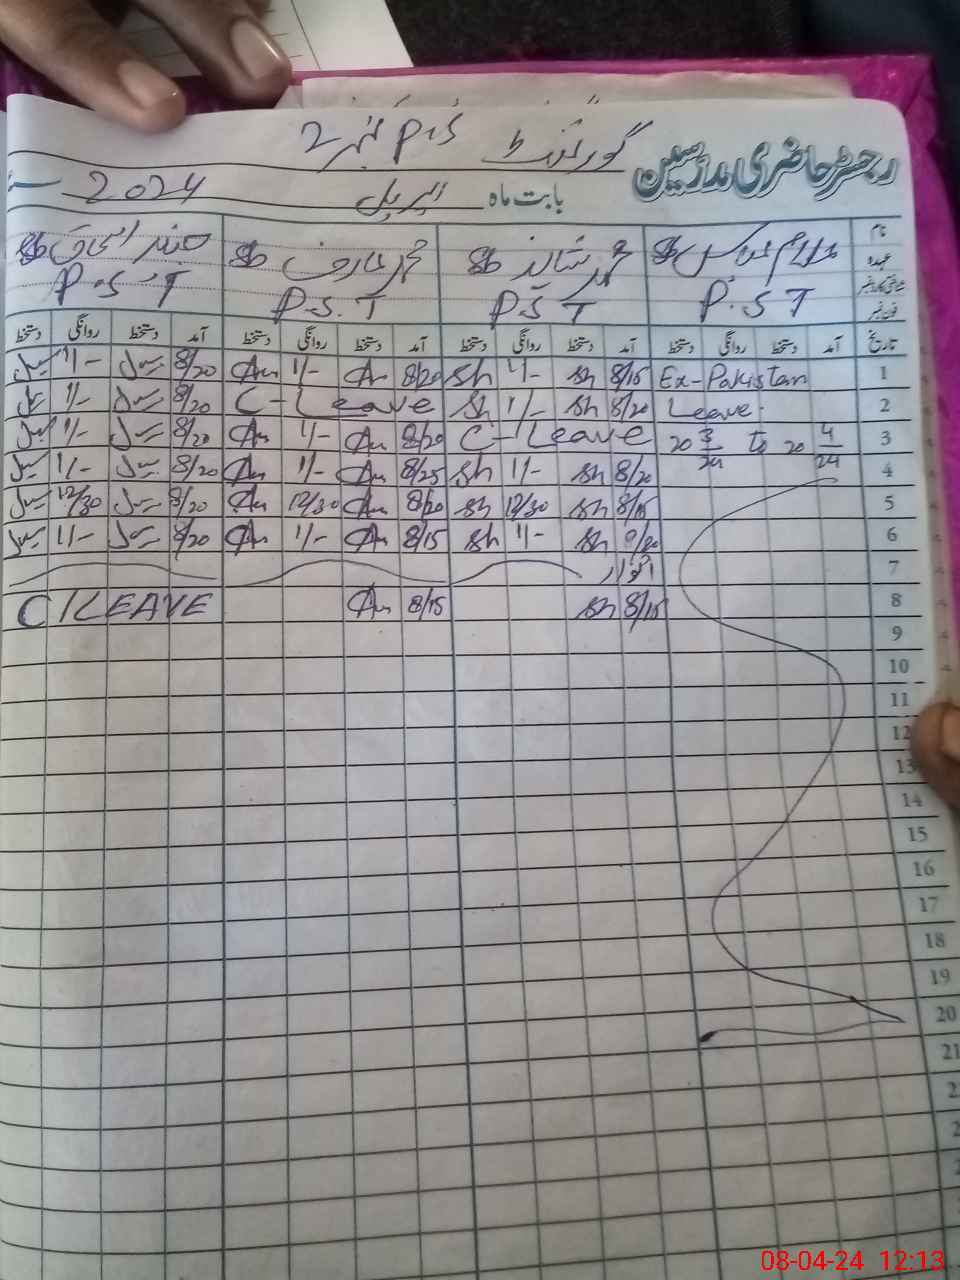 گورنمنٹ P.S نمبر 2
رجسٹر حاضری مدرسین
بابت ماہ اپریل 2024
نام غلام عباس sb محمد شاہد sb محمد عارف sb sb
عہدہ P.S T P.S T P.S.T P.S T
فون نمبر
تاریخ آمد دستخط روانگی دستخط آمد دستخط روانگی دستخط آمد دستخط روانگی دستخط آمد دستخط روانگی دستخط
1 Ex-Pakistan 8/15 Sh 1/- Sh 8/20 Am 1/- Am 8/20 1/-
2 Leave. 8/20 Sh 1/- Sh C-Leave 8/20 1/-
3 20 3/24 to 20 4/24 C-Leave 8/20 Am 1/- Am 8/20 1/-
4 8/20 Sh 1/- Sh 8/25 Am 1/- Am 8/20 1/-
5 8/15 Sh 12/30 Sh 8/20 Am 12/30 Am 8/20 12/30
6 Sh 1/- Sh 8/15 Am 1/- Am 8/20 1/-
7 اتوار
8 8/15 Sh 8/15 Am C/LEAVE
9
10
11
12
13
14
15
16
17
18
19
20
21
08-04-24 12:13